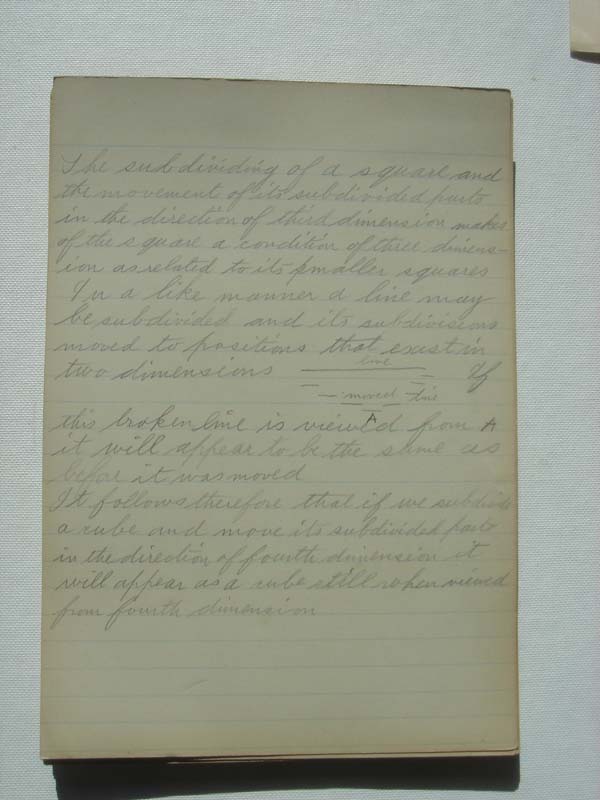 The subdividing of a square and
the movement of its subdivided parts
in the direction of third dimension makes
of the square a condition of three dimens-
ion as related to its smaller squares
In a like manner a line may
be subdivided and its subdivisions
moved to positions that exist in
line
two dimensions If
moved line
this broken line is viewed from A
A
it will appear to be the same as
before it was moved
It follows therefore that if we subdivide
a cube and move its subdivided parts
in the direction of fourth dimension it
will appear as a cube still when viewed
from fourth dimension